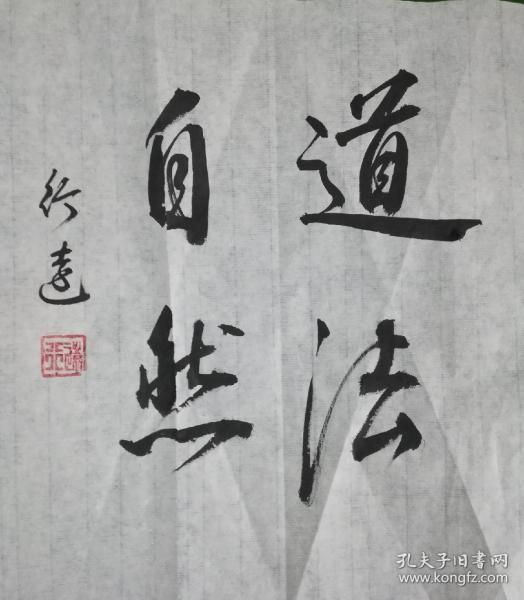 道法
自然
行遠
孔夫子旧书网
www.kongfz.com